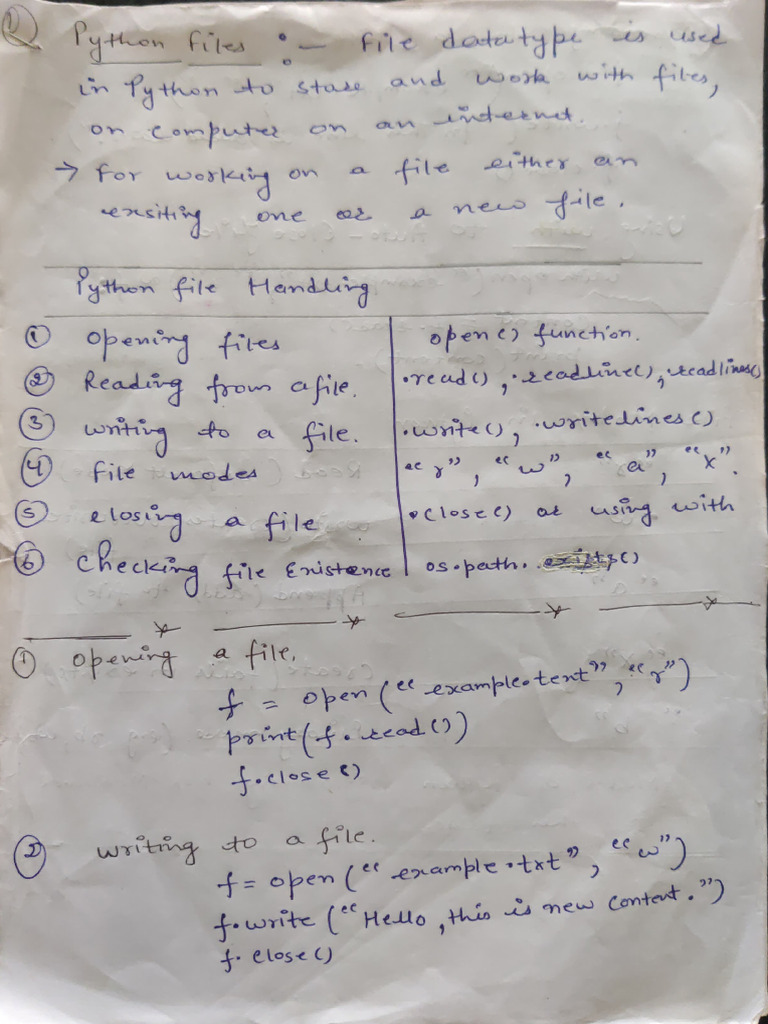 ① Python files :- File datatype is used
in Python to store and work with files,
on computer on an internet.
→ For working on a file either an
exsiting one or a new file.
Python file Handling
① opening files open() function.
② Reading from a file. .read(), .readline(), readlines()
③ writing to a file. .write(), .writelines()
④ file modes "r", "w", "a", "x".
⑤ closing a file .close() or using with
⑥ checking file Existence os.path.exists()
① opening a file.
f = open("example.text", "r")
print(f.read())
f.close()
② writing to a file.
f = open("example.txt", "w")
f.write("Hello, this is new content.")
f.close()